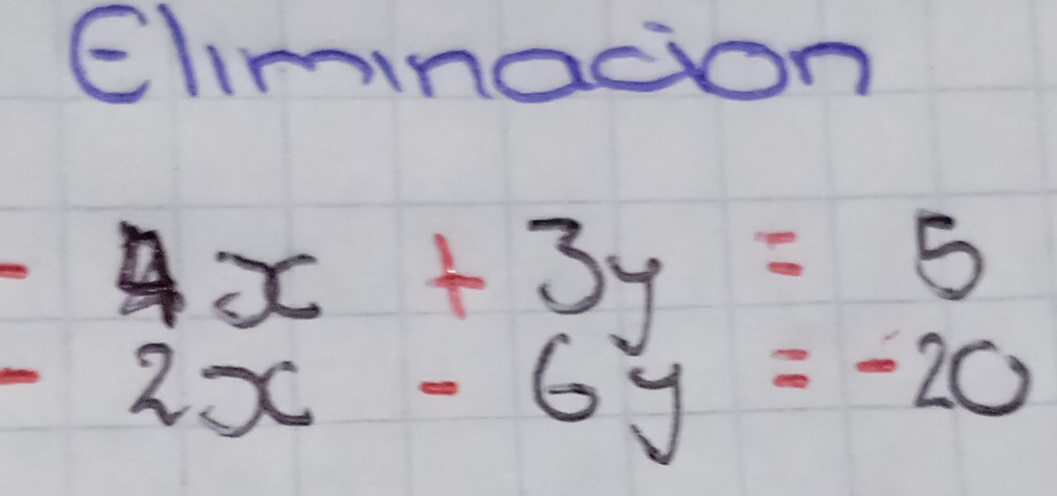 Eliminacion
- 4x + 3y = 5
- 2x - 6y = -20